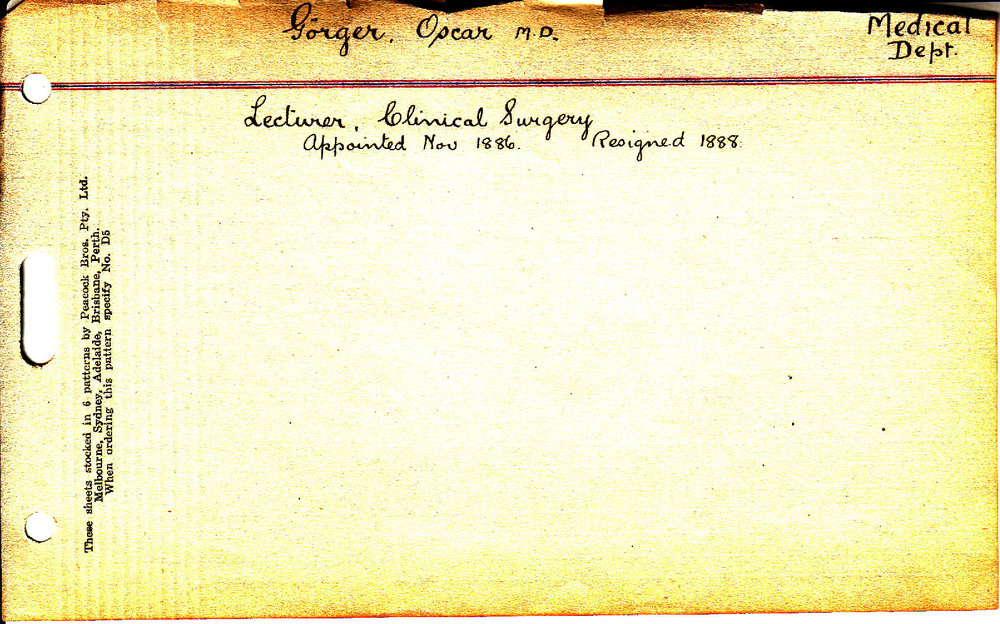 Görger, Oscar M.D.
Medical
Dept.
Lecturer, Clinical Surgery
Appointed Nov 1886. Resigned 1888.
These sheets stocked in 6 patterns by Peacock Bros. Pty. Ltd.
Melbourne, Sydney, Adelaide, Brisbane, Perth.
When ordering this pattern specify No. D5